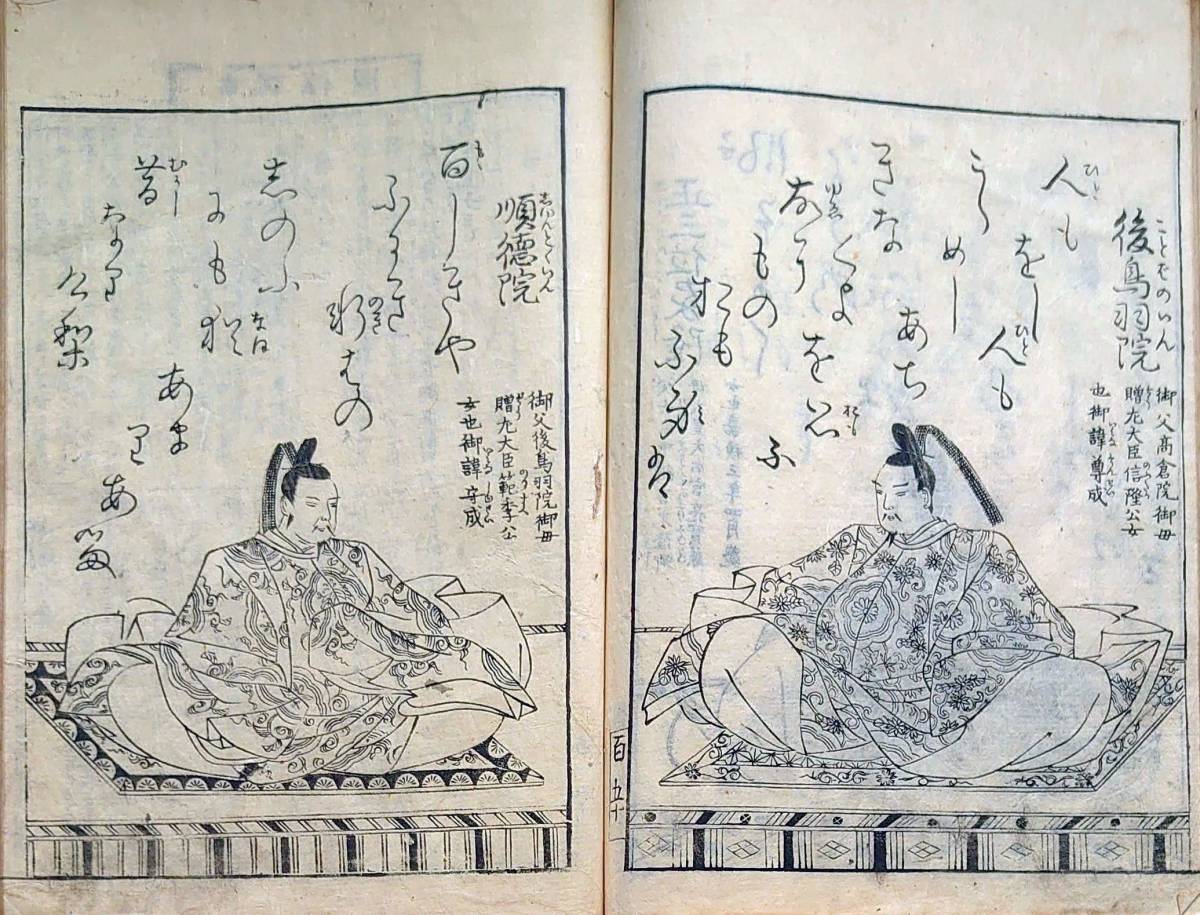 後鳥羽院
御父高倉院御母
贈左大臣信隆公女
也御諱尊成
人も
をし
人も
うら
めし
あち
きな
くよ
を思
ふ
ゆゑに
もの
おも
ふ身
は
百 五十
順徳院
御父後鳥羽院御母
贈左大臣範季公
女也御諱守成
百しきや
ふるき
軒はの
しのふ
にも猶
あま
り
ある
昔
なり
けり